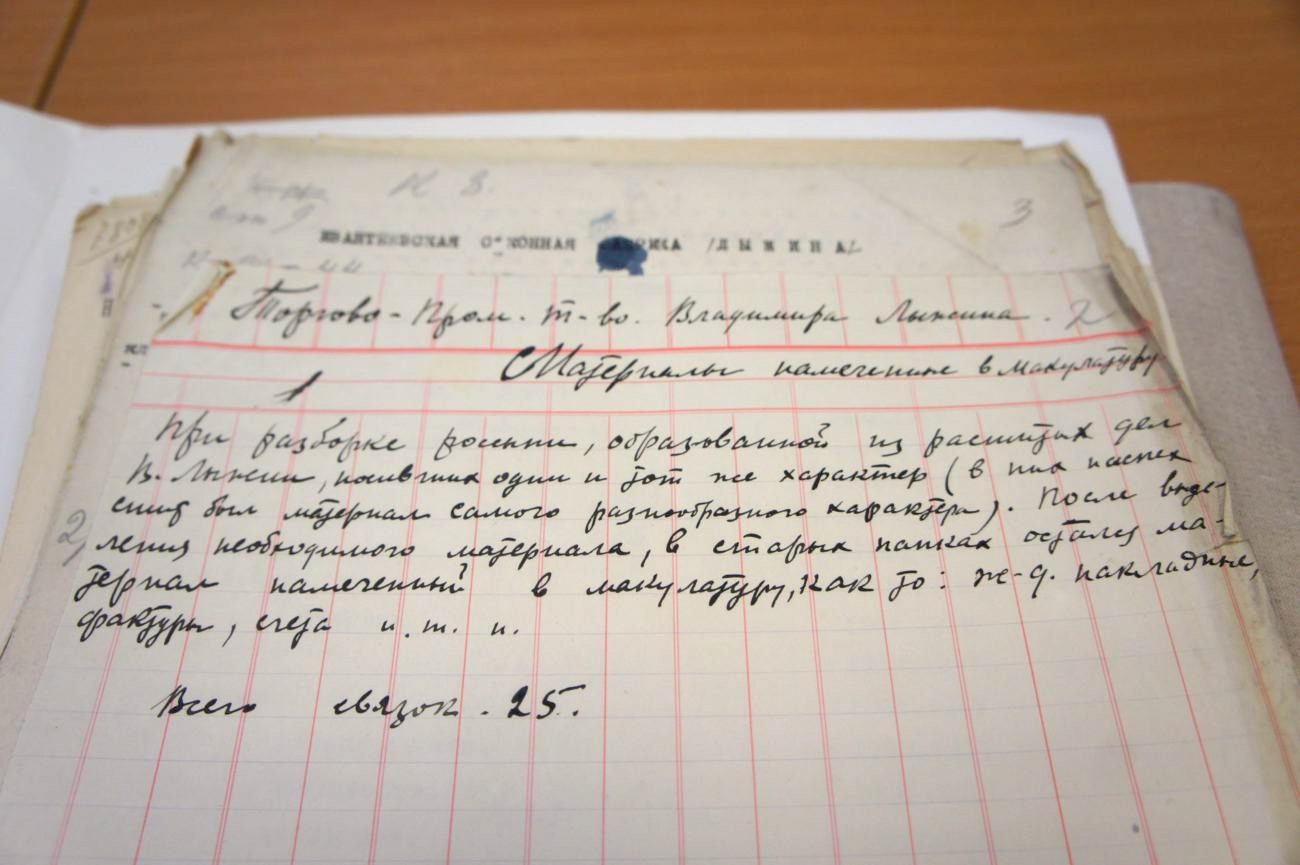 К 3.
3
ИВАНТЕЕВСКАЯ СУКОННАЯ ФАБРИКА /ЛЫЖИНА/
Торгово-Пром. т-во. Владимира Лыжина. 2
Материалы намеченные в макулатуру.
1
При разборке россыпи, образованной из расшитых дел
В. Лыжин, носивших один и тот же характер (в них
был материал самого разнообразного характера). После выде-
2) ления необходимого материала, в старых папках остался ма-
териал намеченный в макулатуру, как то: ж-д. накладные,
фактуры, счета и. т. п.
Всего связок. 25.